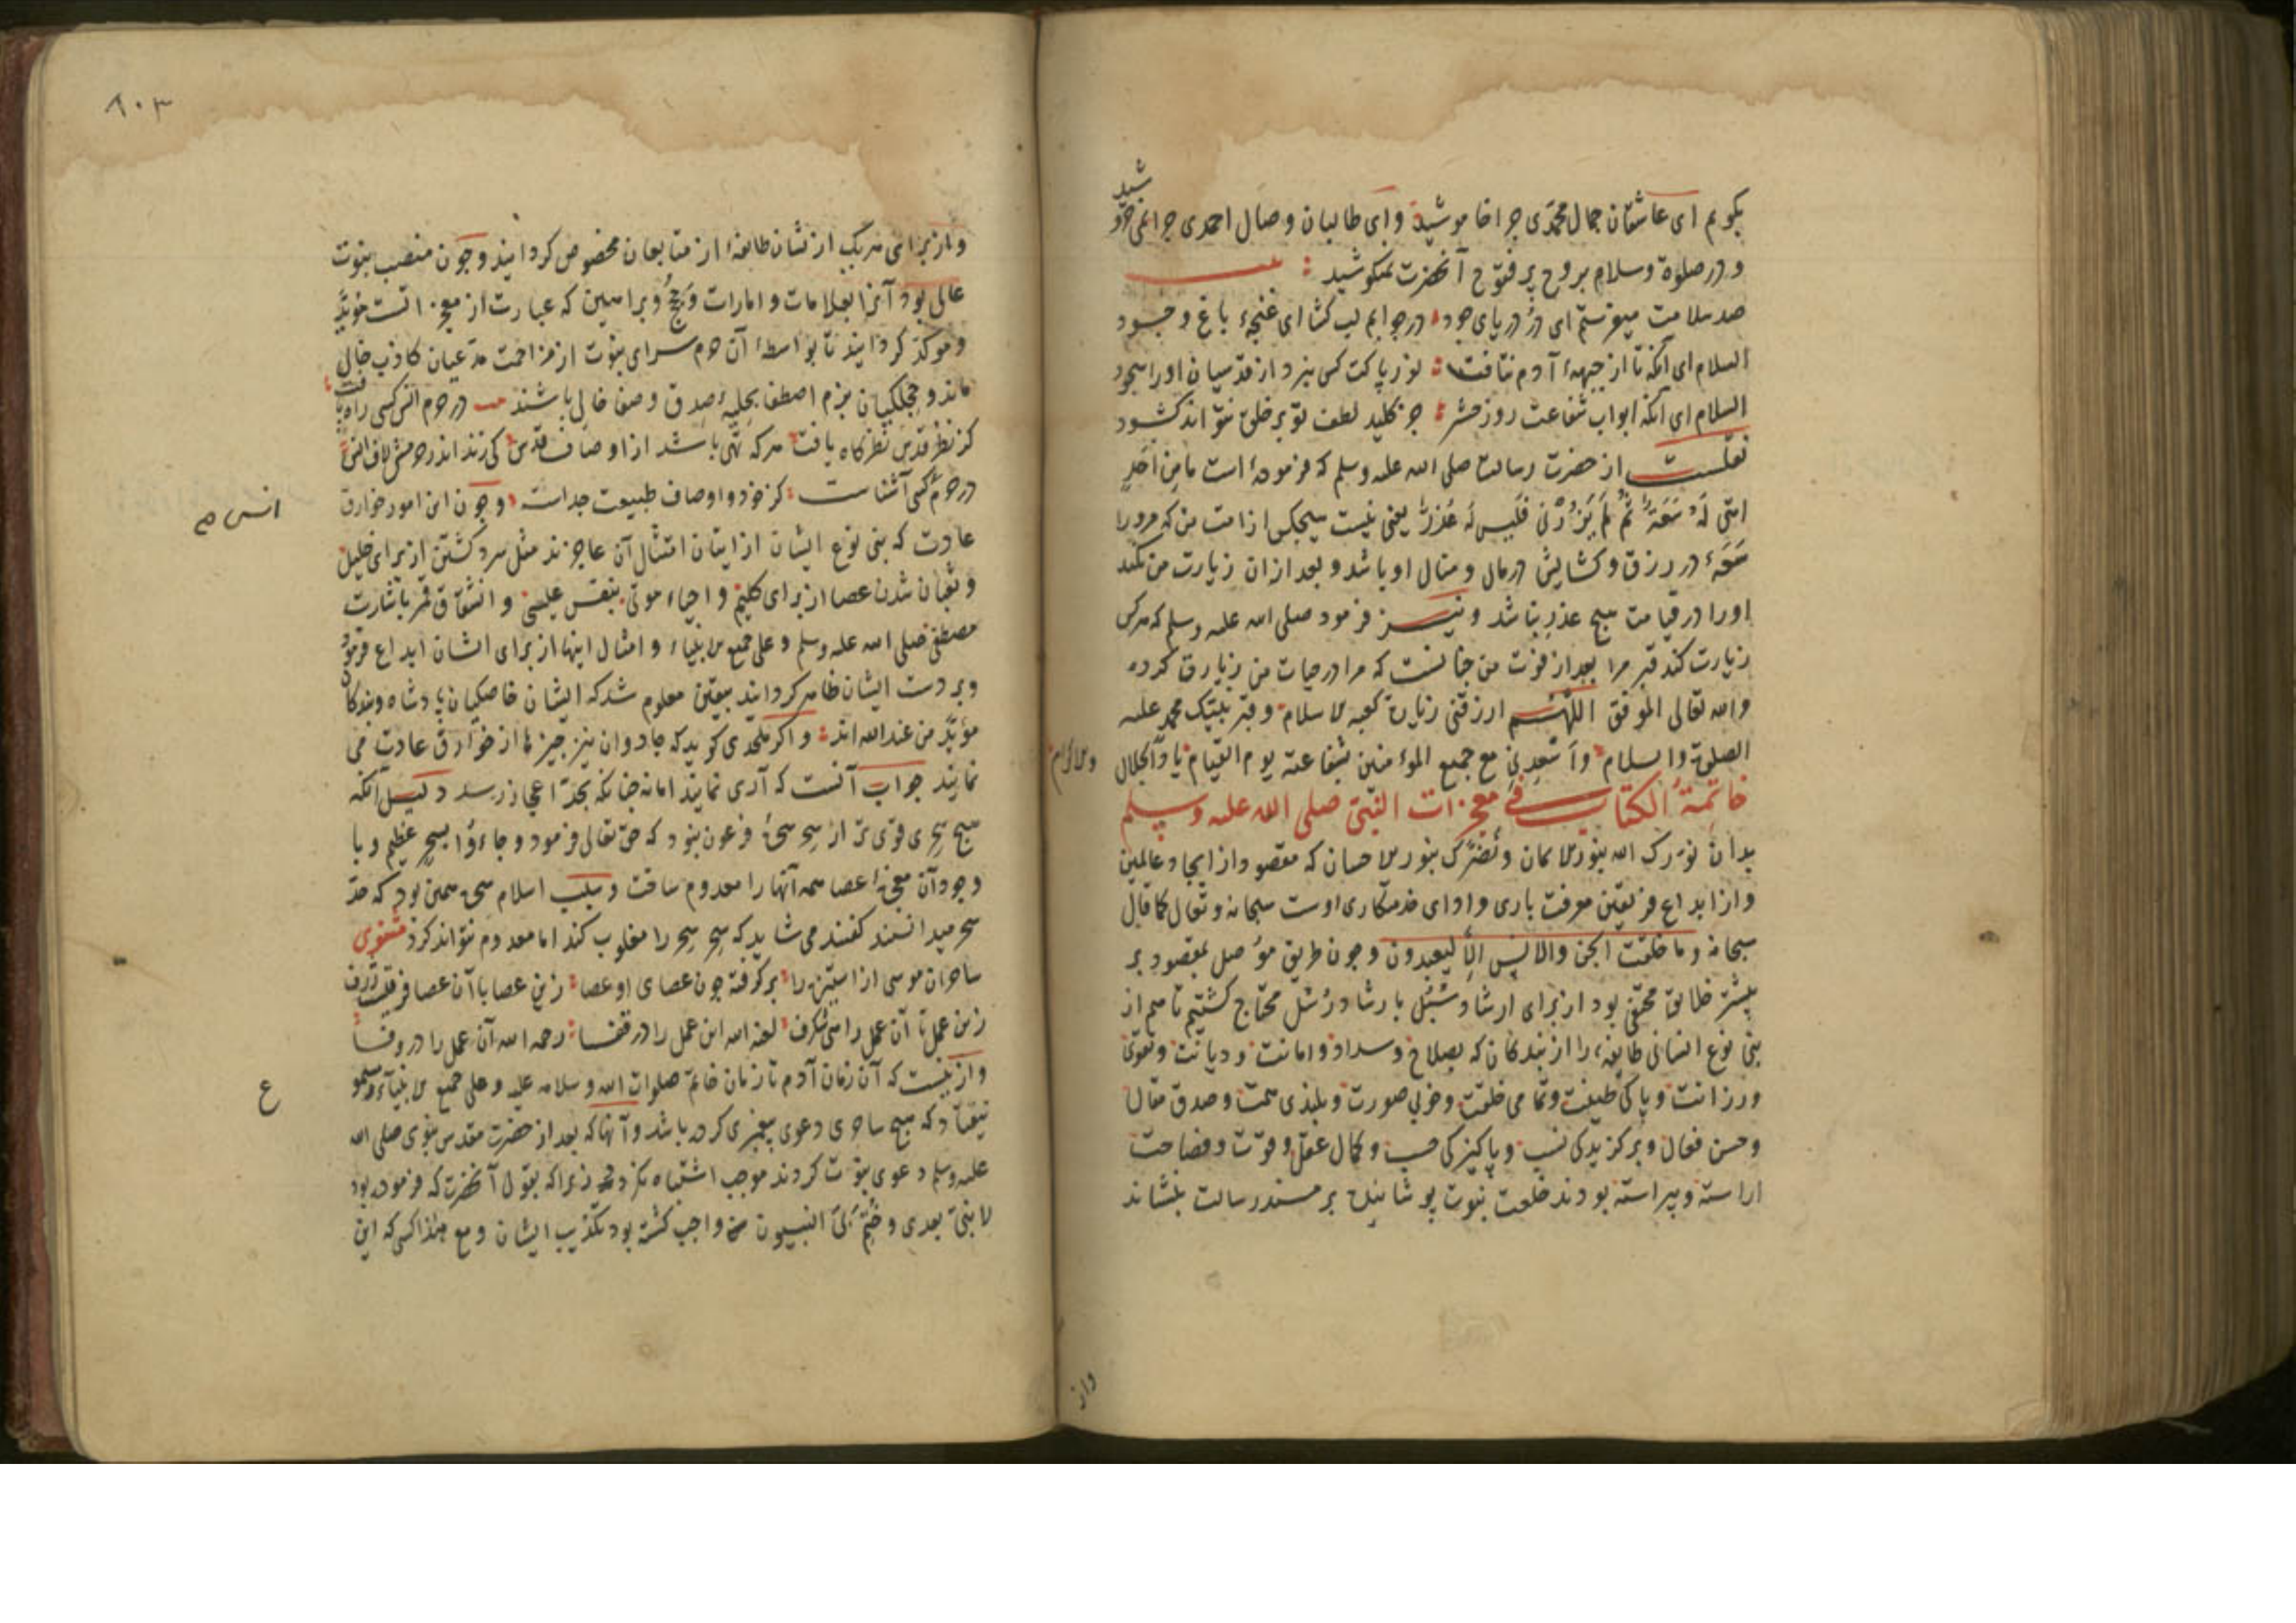 بکویم ای عاشقان جمال محمدی چرا خاموشید وای طالبان وصال احمدی چرا نمی خروشید
و در صلوة وسلام بروح پر فتوح آنحضرت نمیکوشید
صد سلامت میفرستم ای در دریای جود در جوابم لب کشا ای غنچهٔ باغ وجود
السلام ای آنکه تا از جبههٔ آدم نتافت نور پاکت کس نبرد از قدسیان او را سجود
السلام ای آنکه ابواب شفاعت روز حشر جز کلید لطف تو بر خلق نتواند کشود
نقلست از حضرت رسالت صلی الله علیه وسلم که فرموده است ما من احد
امتی له سعة ثم لم یزرنی فلیس له عذر یعنی نیست هیچکس از امت من که مرورا
سعهٔ در رزق وکشایش در مال و منال او باشد و بعد ازان زیارت من نکند
اورا در قیامت هیچ عذر نباشد ونیز فرمود صلی الله علیه وسلم که هرکس
زیارت کند قبر مرا بعد از فوت من چنانست که مرا در حیات من زیارت کرده
والله تعالی الموفق اللهم ارزقنی زیارة کعبة الاسلام وقبر نبیک محمد علیه
الصلوة والسلام واسعدنی مع جمیع المؤمنین بشفاعته یوم القیام یا ذالجلال
والاکرام
خاتمة الکتاب فی معجزات النبی صلی الله علیه وسلم
بدان نورک الله بنور الایمان ونضرک بنور الاحسان که مقصود از ایجاد عالمین
واز ابداع فریقین معرفت باری وادای خدمتکاری اوست سبحانه وتعالی کما قال
سبحانه وما خلقت الجن والانس الا لیعبدون وچون طریق موصل بمقصود بر
بیشتر خلایق مخفی بود از برای ارشاد سبل بارشاد رسل محتاج کشتیم تا هم از
بنی نوع انسانی طایفهٔ را از بندکان که بصلاح وسداد وامانت ودیانت وتقوی
ورزانت وپاکی طینت وتمامی خلقت وخوبی صورت وبلندی همت وصدق مقال
وحسن فعال وبرکزیدکی نسب وپاکیزکی حسب وکمال عقل وقوت وفصاحت
اراسته وپیراسته بودند خلعت نبوت پوشانیده بر مسند رسالت بنشاند
واز
٨٠٣
واز برای هریک ازیشان طایفهٔ از متابعان مخصوص کردانید وچون منصب نبوت
عالی بود آنرا بعلامات وامارات وحجج وبراهین که عبارت از معجزاتست مؤید
وموکد کردانید تا بواسطهٔ آن حرم سرای نبوت از مزاحمت مدعیان کاذب خالی
ماند و بزم اصطفا بحلیهٔ صدق وصفا حالی باشند در حرم انس کسی راه یافت
کز نظر قدس نظرکاه یافت هرکه تهی باشد از اوصاف قدس کی زند اندر حرمش لاف انس
در حرم کسی آشناست کز خود واوصاف طبیعت جداست وچون این امور خوارق
انس صح
عادت که بنی نوع ایشان از ایتان امتثال آن عاجزند مثل سرد کشتن از برای خلیل
وثعبان شدن عصا از برای کلیم واحیاء موتی بنفس عیسی وانشقاق قمر باشارت
مصطفی صلی الله علیه وسلم وعلی جمیع الانبیاء وامثال اینها از برای ایشان ابداع فرمود
وبر دست ایشان ظاهر کردانید بیقین معلوم شد که ایشان خاصکیان پادشاه وبندکان
مؤید من عند الله اند واکر ملحدی کوید که جادوان نیز چیزها از خوارق عادت می
نمایند جواب آنست که آری نمایند اما نه چنانکه بحد اعجاز رسد دلیل آنکه
هیچ سحری قوی تر از سحر سحرهٔ فرعون نبود که حق تعالی فرمود وجاءوا بسحر عظیم وبا
وجود آن معجزهٔ عصا همه آنها را معدوم ساخت وسبب اسلام سحره همین بود که حد
سحر میدانستند کفتند می شاید که سحر سحر را مغلوب کند اما معدوم نتواند کرد مثنوی
ساحران موسی از استیزه را برکرفته چون عصای او عصا زین عصا تا آن عصا فرقیست ژرف
زین عمل تا آن عمل راهی شکرف لعنة الله این عمل را در قفا رحمة الله آن عمل را در وفا
وازینست که آن زمان آدم تا زمان خاتم صلوات الله وسلامه علیه وعلی جمیع الانبیاء
ع
نیفتاد که هیچ ساحری دعوی پیغمبری کرده باشد وآنها که بعد از حضرت مقدس نبوی صلی الله
علیه وسلم دعوی نبوت کردند موجب اشتباه نکردد زیرا که بقول آنحضرت که فرموده بود
لا نبی بعدی وختم لی النبییون واجب کشته بود تکذیب ایشان ومع هذا کسی که این